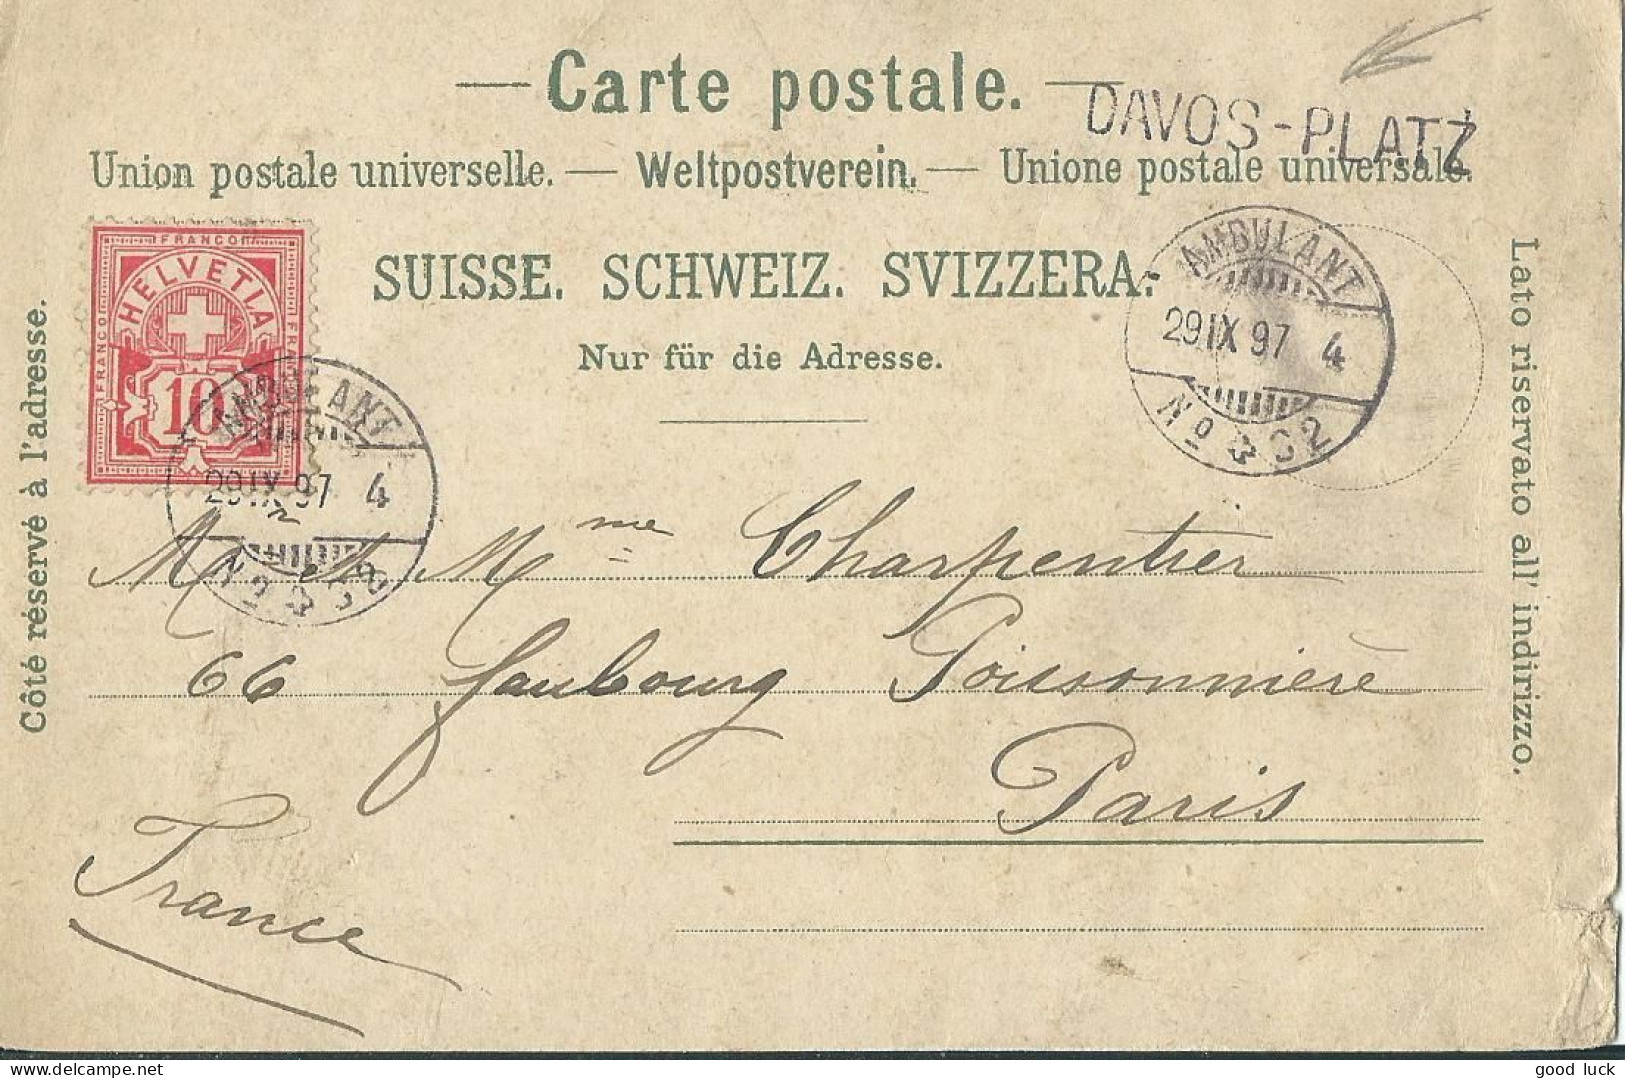 — Carte postale. —
DAVOS-PLATZ
Union postale universelle. — Weltpostverein. — Unione postale universale.
SUISSE. SCHWEIZ. SVIZZERA.
Nur für die Adresse.
Côté réservé à l'adresse.
Lato riservato all' indirizzo.
FRANCO
FRANCO
FRANCO
HELVETIA
10
AMBULANT
29 IX 97 4
No 32
AMBULANT
29 IX 97 4
No 32
M et Mme Charpentier
66 faubourg Poissonnière
Paris
France
delcampe.net
good_luck